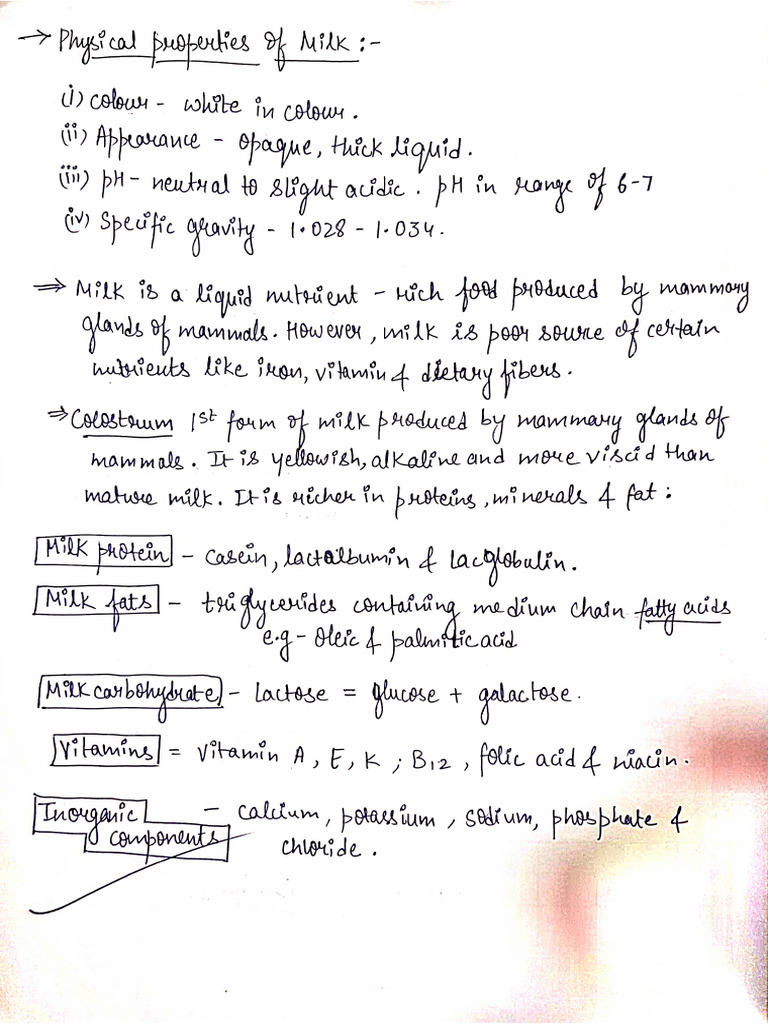 → Physical properties of Milk :-
(i) colour - white in colour.
(ii) Appearance - opaque, thick liquid.
(iii) pH - neutral to slight acidic. pH in range of 6-7
(iv) Specific gravity - 1.028 - 1.034.
⇒ Milk is a liquid nutrient - rich food produced by mammary
glands of mammals. However, milk is poor source of certain
nutrients like iron, vitamin & dietary fibers.
⇒ Colostrum 1st form of milk produced by mammary glands of
mammals. It is yellowish, alkaline and more viscid than
mature milk. It is richer in proteins, minerals & fat :
Milk protein - casein, lactalbumin & lacglobulin.
Milk fats - triglycerides containing medium chain fatty acids
e.g - Oleic & palmitic acid
Milk carbohydrate - lactose = glucose + galactose.
Vitamins = vitamin A, E, K ; B12, folic acid & niacin.
Inorganic - calcium, potassium, sodium, phosphate &
components chloride.